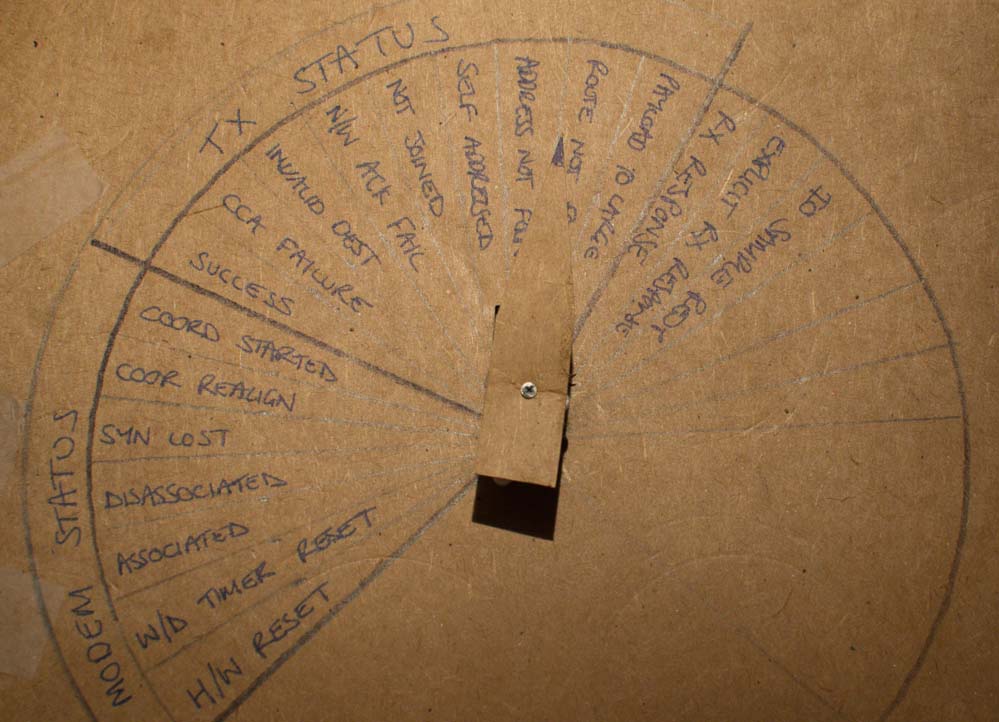 MODEM STATUS
H/W RESET
W/D TIMER RESET
ASSOCIATED
DISASSOCIATED
SYN LOST
COOR REALIGN
COORD STARTED
TX STATUS
SUCCESS
CCA FAILURE
INVALID DEST
N/W ACK FAIL
NOT JOINED
SELF ADDRESSED
ADDRESS NOT
ROUTE NOT
PAYLOAD TO LARGE
RX RESPONSE
EXPLICIT RX RESPONSE
IO SAMPLE